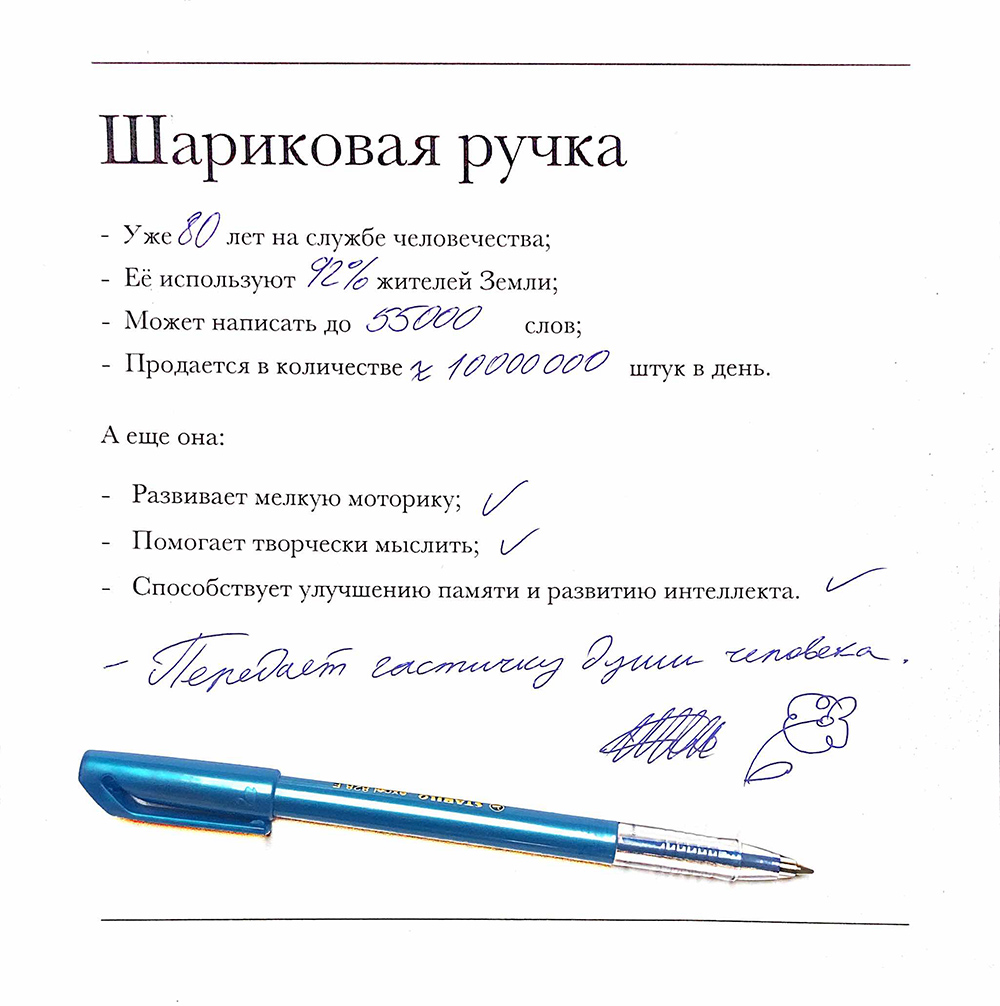 Шариковая ручка
- Уже 80 лет на службе человечества;
- Её используют 92% жителей Земли;
- Может написать до 55000 слов;
- Продается в количестве ≈ 10000000 штук в день.
А еще она:
- Развивает мелкую моторику; ✓
- Помогает творчески мыслить; ✓
- Способствует улучшению памяти и развитию интеллекта. ✓
- Передает частичку души человека.
STABILO